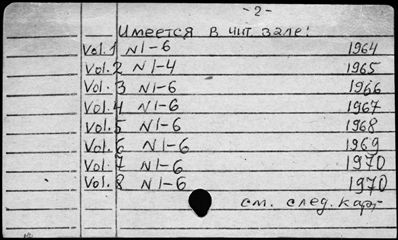 -2-
Имеется в чит. зале:
Vol. 1 N1-6 1964
Vol. 2 N1-4 1965
Vol. 3 N1-6 1966
Vol. 4 N1-6 1967
Vol. 5 N1-6 1968
Vol. 6 N1-6 1969
Vol. 7 N1-6 1970
Vol. 8 N1-6 1970
см. след. карт